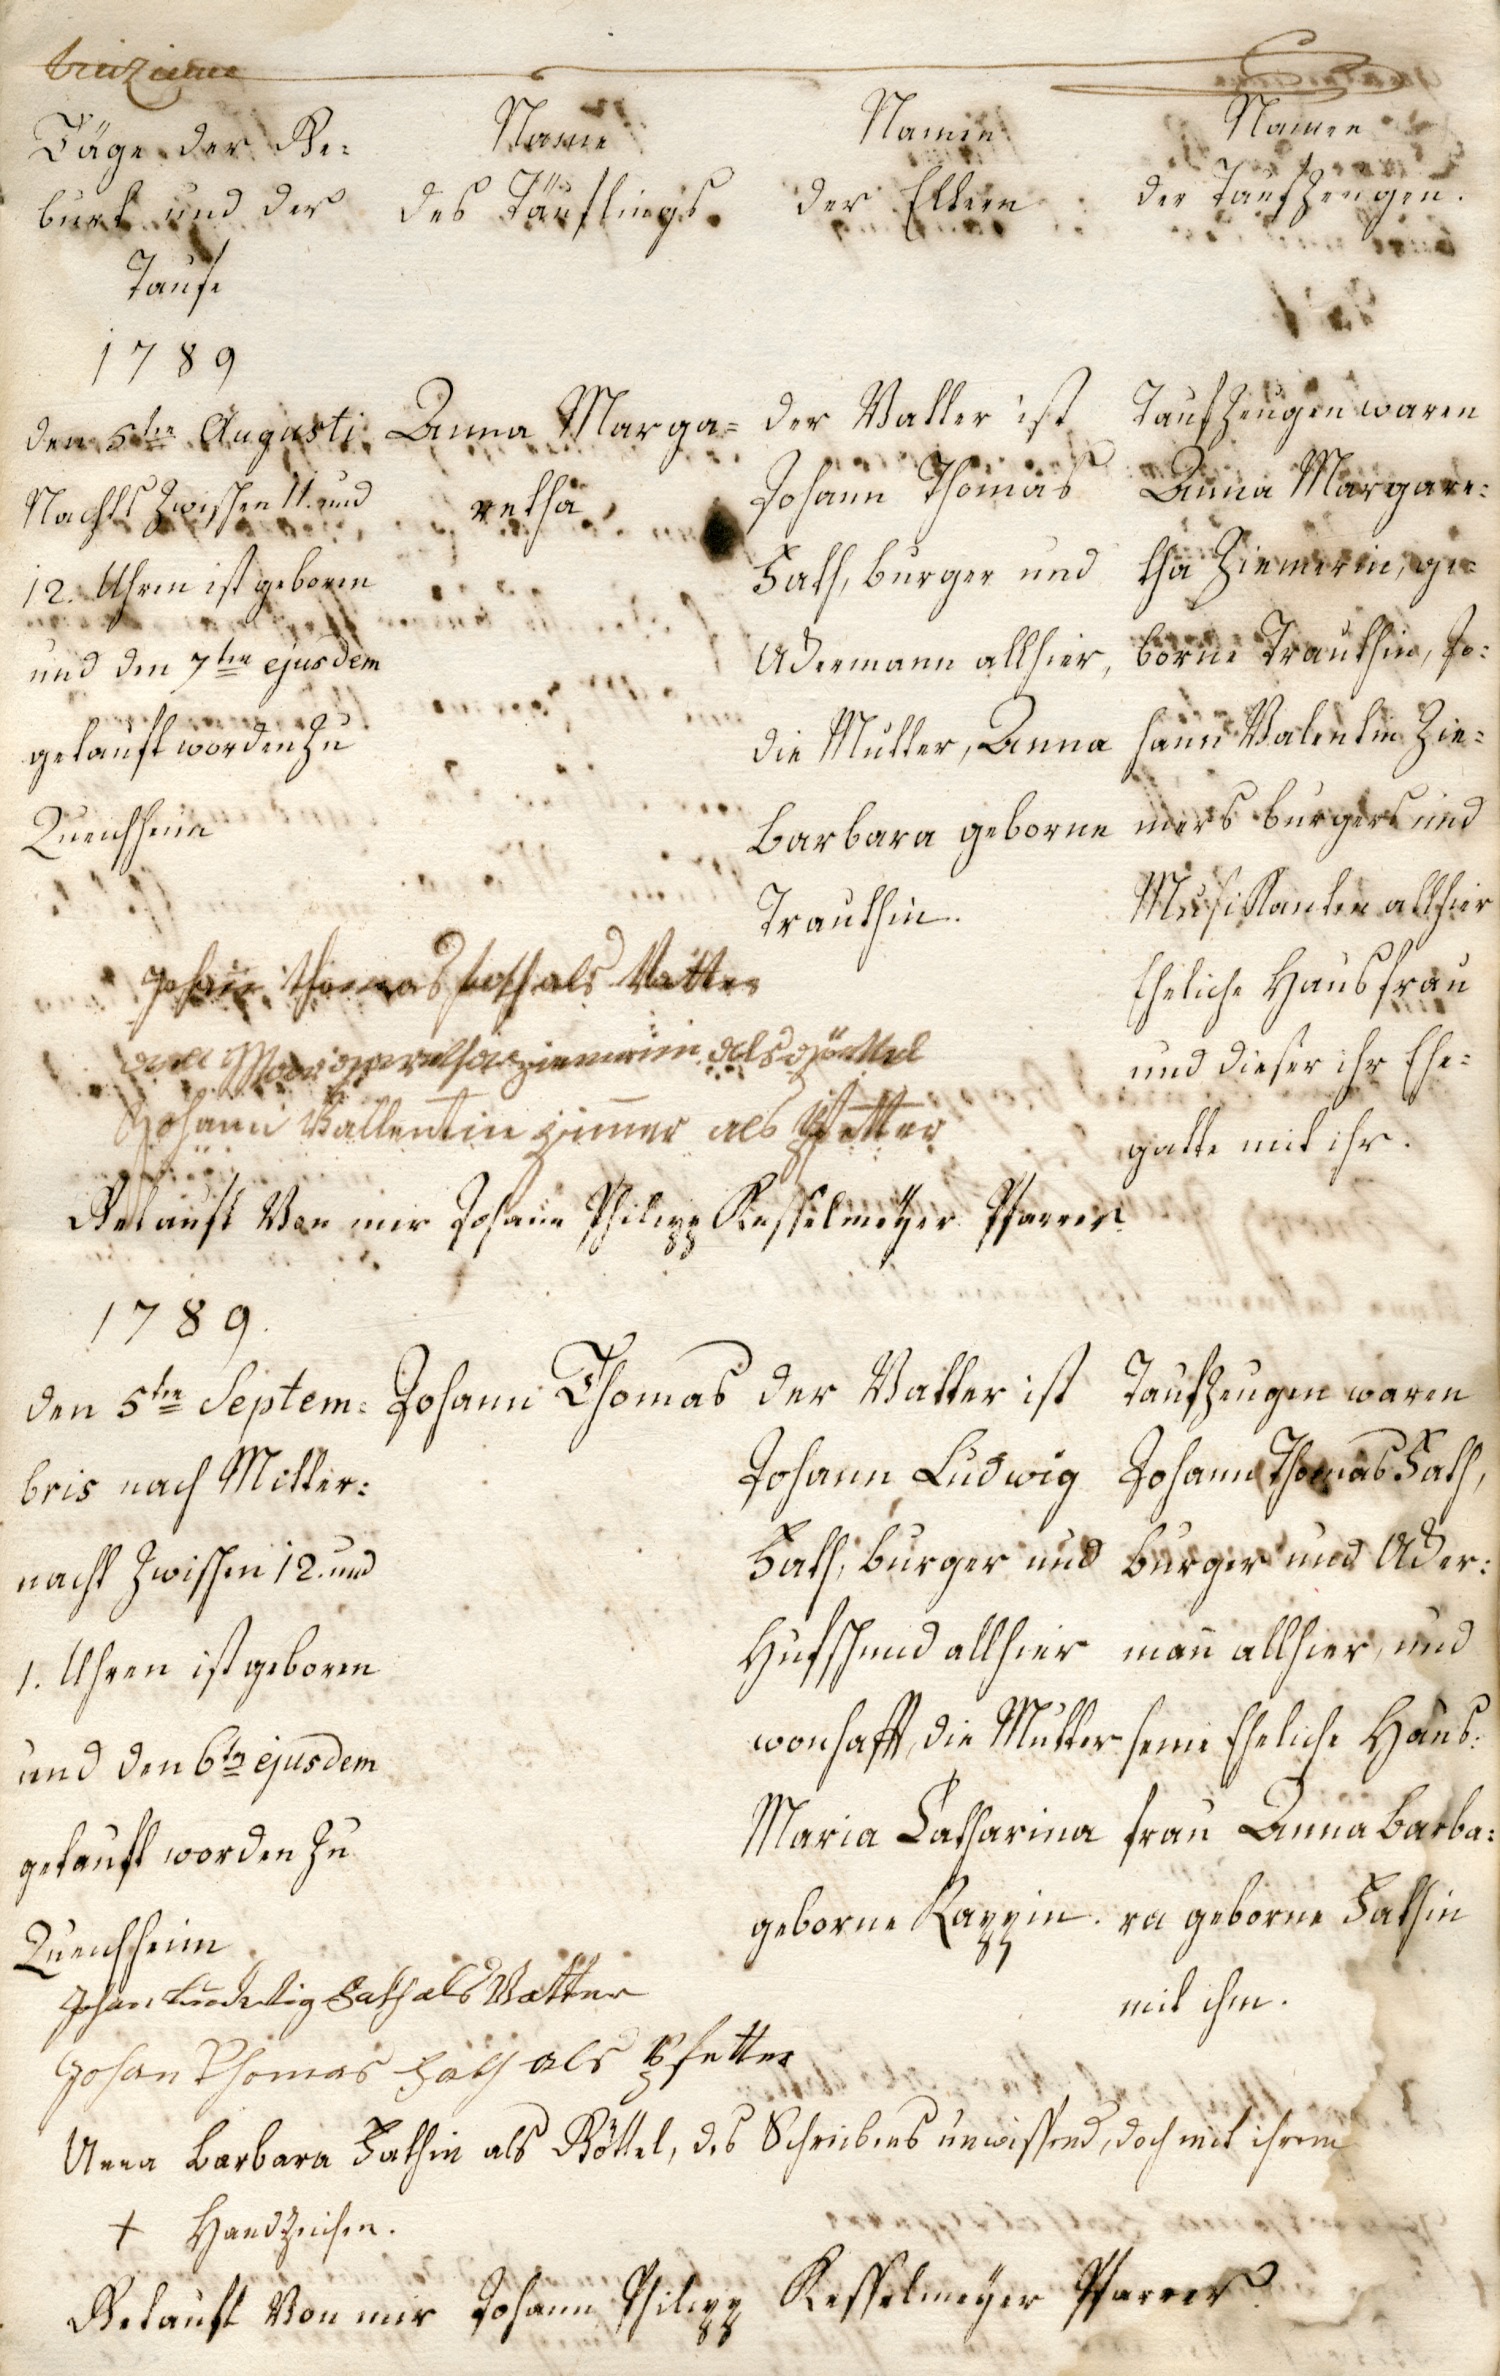 treizieme
Täge der Ge=
burt und der
Taufe
Name
des Täuflings.
Namen
der Eltern
Namen
der Taufzeugen.
1789
den 5ten Augusti
Nachts zwischen 11. und
12. Uhren ist geboren
und den 7ten ejusdem
getauft worden zu
Queichheim
Anna Marga=
retha
der Vatter ist
Johann Thomas
Fath, burger und
Ackermann allhier,
die Mutter, Anna
Barbara geborne
Trauthin.
Taufzeugen waren
Anna Margare=
tha Ziemerin, ge=
borne Trauthin, Jo=
hann Valentin Zie=
mers burgers und
Musikanten allhier
Eheliche Hausfrau
und dieser ihr Ehe=
gatte mit ihr.
Johann thomas fath als Vatter
Margaretha ziemerin als göttel
Johann Vallentin zimer als Pfetter
Getauft Von mir Johann Philipp Kesselmeÿer Pfarrer.
1789.
den 5ten Septem=
bris nach Mitter=
nacht zwischen 12. und
1. Uhren ist geboren
und den 6ten ejusdem
getauft worden zu
Queichheim
Johann Thomas
der Vatter ist
Johann Ludwig
Fath, burger und
Hufschmid allhier
wonhafft, die Mutter
Maria Catharina
geborne Kappin.
Taufzeugen waren
Johann Thomas Fath,
burger und Acker=
mañ allhier, und
seine Eheliche Haus=
frau Anna Barba=
ra geborne Fathin
mit ihm.
Johan Ludwig Fath als Vatter
Johan Thomas fath als Pfetter
Anna Barbara Fathin als Göttel, des Schreibens unwissend, doch mit ihrem
+ Handzeichen.
Getauft Von mir Johann Philipp Kesselmeÿer Pfarrer.